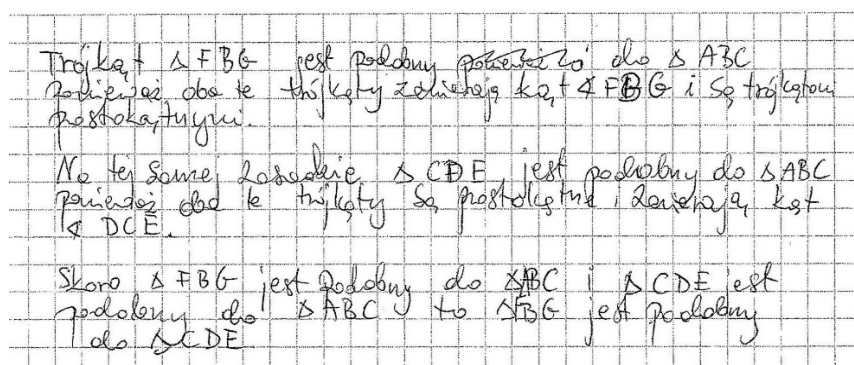 Trójkąt Δ FBG jest podobny ponieważ do Δ ABC
ponieważ oba te trójkąty zawierają kąt ∢ FBG i są trójkątami
prostokątnymi.
Na tej samej zasadzie Δ CDE jest podobny do Δ ABC
ponieważ oba te trójkąty są prostokątne i zawierają kąt
∢ DCE.
Skoro Δ FBG jest podobny do ΔABC i Δ CDE jest
podobny do Δ ABC to ΔFBG jest podobny
do ΔCDE